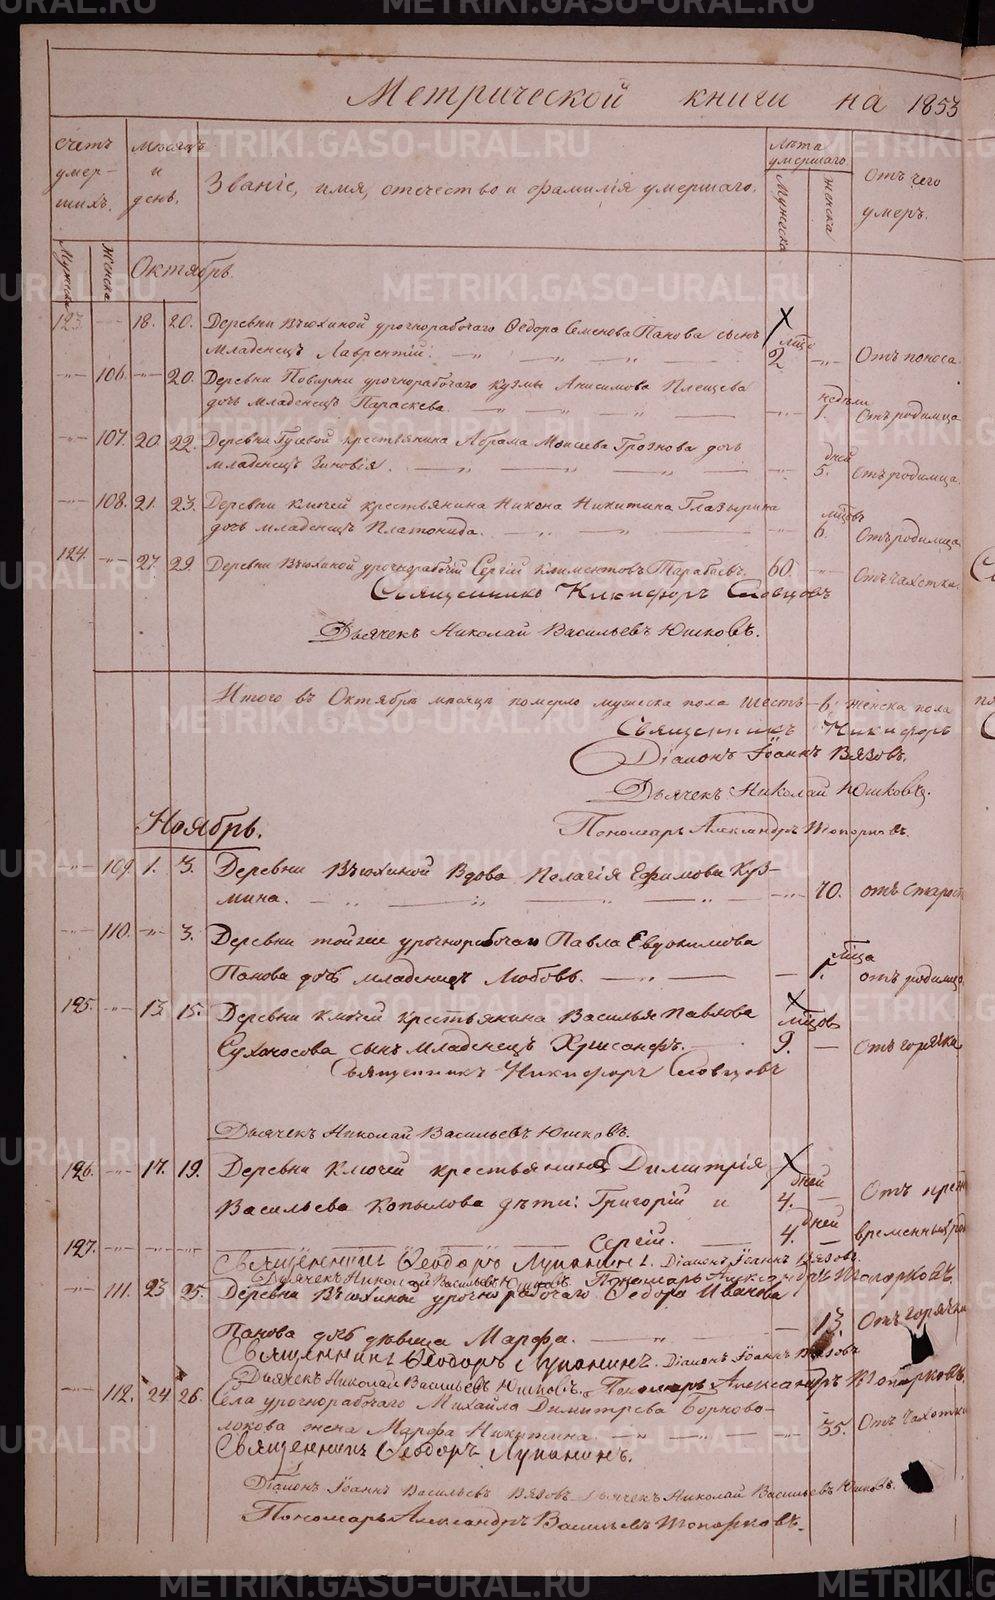 Метрической книги на 1853
Счетъ умер- шихъ.
Мужеска
Женска
Месяцъ и день.
Званіе, имя, отечество и фамилія умершаго.
Лета умершаго
Мужеска
Женска
Отъ чего умеръ.
Октябрь.
123. 18. 20. Деревни Вьюхиной урочнорабочаго Ѳедора Семенова Панова сынъ
Младенецъ Лаврентій. 2 Отъ поноса.
106. 20. Деревни Поварни урочнорабочаго Кузмы Анисимова Плещева
дочь младенецъ Параскева. недели 1. Отъ родимца
107. 20. 22. Деревни Гусевой крестьянина Абрама Моисеева Грознова дочь
младенецъ Зиновія. дней 5. Отъ родимца.
108. 21. 23. Деревни Ключей крестьянина Никона Никитина Глазырина
дочь младенецъ Платонида. мцовъ 6. Отъ родимца
124. 27. 29. Деревни Вьюхиной урочнорабочій Сергій Климентовъ Тарабаевъ. 60. Отъ чахотки.
Священникъ Никифоръ Словцовъ
Дьячекъ Николай Васильевъ Юшковъ.
Итого въ Октябре месяце померло мужеска пола шесть-6, женска пола
Священникъ Никифоръ
Діаконъ Іоаннъ Вязовъ.
Дьячекъ Николай Юшковъ.
Пономарь Александръ Топорковъ.
Ноябрь.
109. 1. 3. Деревни Вьюхиной Вдова Пелагія Ефимова Куз-
мина. 70. отъ старост
110. 3. Деревни тойже урочнорабочаго Павла Евдокимова
Панова дочь младенецъ Любовь. 1. мца отъ родимца
125. 13. 15. Деревни Ключей крестьянина Василья Павлова мцовъ
Сухоносова сынъ младенецъ Хрисанфъ. 9. Отъ горячки
Священникъ Никифоръ Словцовъ
Дьячекъ Николай Васильевъ Юшковъ.
126. 17. 19. Деревни Ключей крестьянина Димитрія дней
Васильева Копылова дети: Григорій и 4. Отъ преж
127. Сергій. 4. дней временныхъ род
Священникъ Ѳеодоръ Лупанинъ. Діаконъ Іоаннъ Вязовъ.
Дьячекъ Николай Васильевъ Юшковъ. Пономарь Александръ Топорковъ.
111. 23 25. Деревни Вьюхиной урочнорабочаго Ѳедора Иванова
Панова дочь девица Марфа. 13. Отъ горячки
Священникъ Ѳеодоръ Лупанинъ. Діаконъ Іоаннъ Вязовъ
Дьячекъ Николай Васильевъ Юшковъ. Пономарь Александръ Топорковъ.
112. 24 26. Села урочнорабочаго Михаила Димитрева Борново-
локова жена Марфа Никитина. 35. Отъ чахотки
Священникъ Ѳеодоръ Лупанинъ.
Діаконъ Іоаннъ Васильевъ Вязовъ. Дьячекъ Николай Васильевъ Юшковъ.
Пономарь Александръ Васильевъ Топорковъ.
METRIKI.GASO-URAL.RU